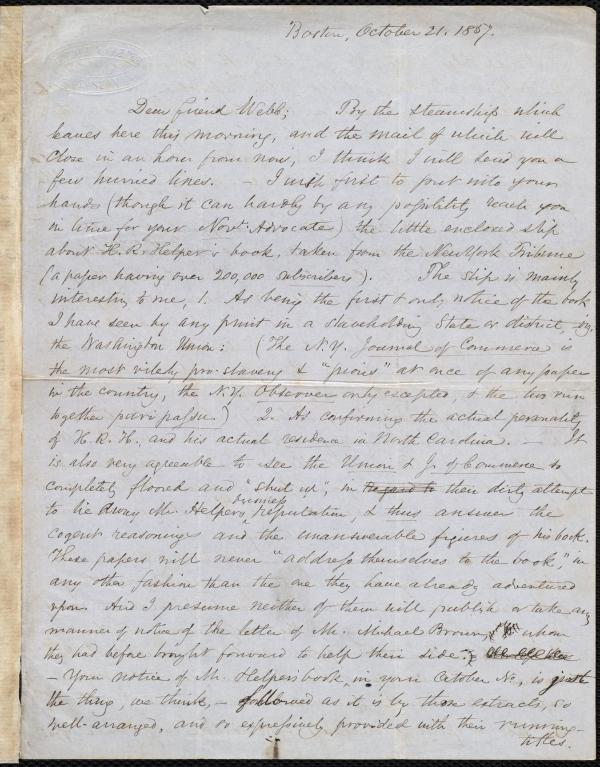 Boston, October 21. 1857.
Dear friend Webb; By the steamship which
leaves here this morning, and the mail of which will
close in an hour from now, I think I will send you a
few hurried lines. — I wish first to put into your
hands (though it can hardly by any possibility reach you
in time for your Novr. Advocate) the little enclosed slip
about H. R. Helper's book, taken from the New York Tribune
(a paper having over 200,000 subscribers). The slip is mainly
interesting to me, 1. As being the first & only notice of the book
I have seen by any print in a slaveholding State or district, viz.
the Washington Union: (The N.Y. Journal of Commerce is
the most vilely pro-slavery & "pious" at once of any paper
in the country, the N.Y. Observer only excepted, & the two run
together pari passu.) 2. As confirming the actual personality
of H. R. H., and his actual residence in North Carolina. — It
is also very agreeable to see the Union & J. of Commerce so
completely floored and "shut up", in regard to their dirty attempt
to lie away Mr. Helper's business reputation, & thus answer the
cogent reasonings and the unanswerable figures of his book.
These papers will never "address themselves to the book", in
any other fashion than the one they have already adventured
upon. And I presume neither of them will publish or take any
manner of notice of the letter of Mr. Michael Brown, whom
they had before brought forward to help their side.
— Your notice of Mr. Helper's book, in your October No., is just
the thing, we think, — followed as it is by those extracts, so
well-arranged, and so expressively provided with their running-
titles.